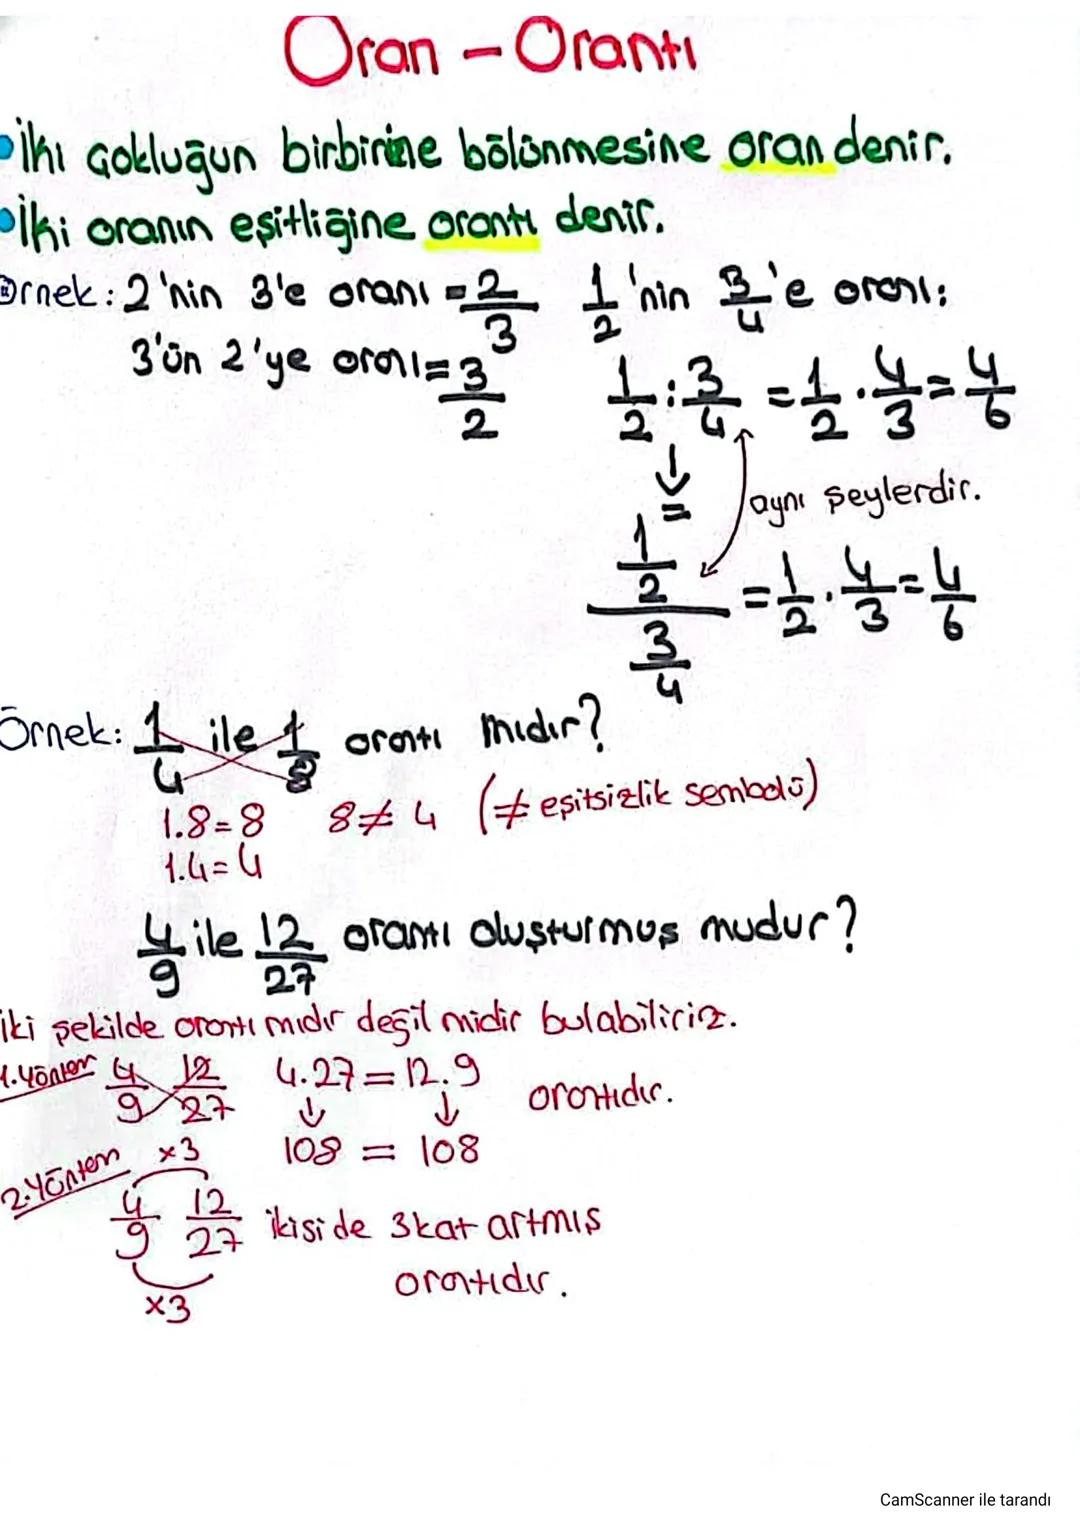 Oran - Orantı
• İki Çokluğun birbirine bölünmesine oran denir.
• İki oranın eşitliğine orantı denir.
Örnek: 2'nin 3'e oranı = 2/3
3'ün 2'ye oranı = 3/2
1/2 'nin 3/4 'e oranı:
1/2 : 3/4 = 1/2 . 4/3 = 4/6
↓ =
aynı şeylerdir.
1/2 / 3/4 = 1/2 . 4/3 = 4/6
Örnek: 1/4 ile 1/8 orantı mıdır?
1.8=8 8≠4 (≠ eşitsizlik sembolü)
1.4=4
4/9 ile 12/27 orantı oluşturmuş mudur?
İki şekilde orantı mıdır değil midir bulabiliriz.
1.Yöntem 4/9 12/27 4.27=12.9 orantıdır.
↓ ↓
108 = 108
2.Yöntem x3
4/9 12/27 ikisi de 3 kat artmış
orantıdır.
x3
CamScanner ile tarandı